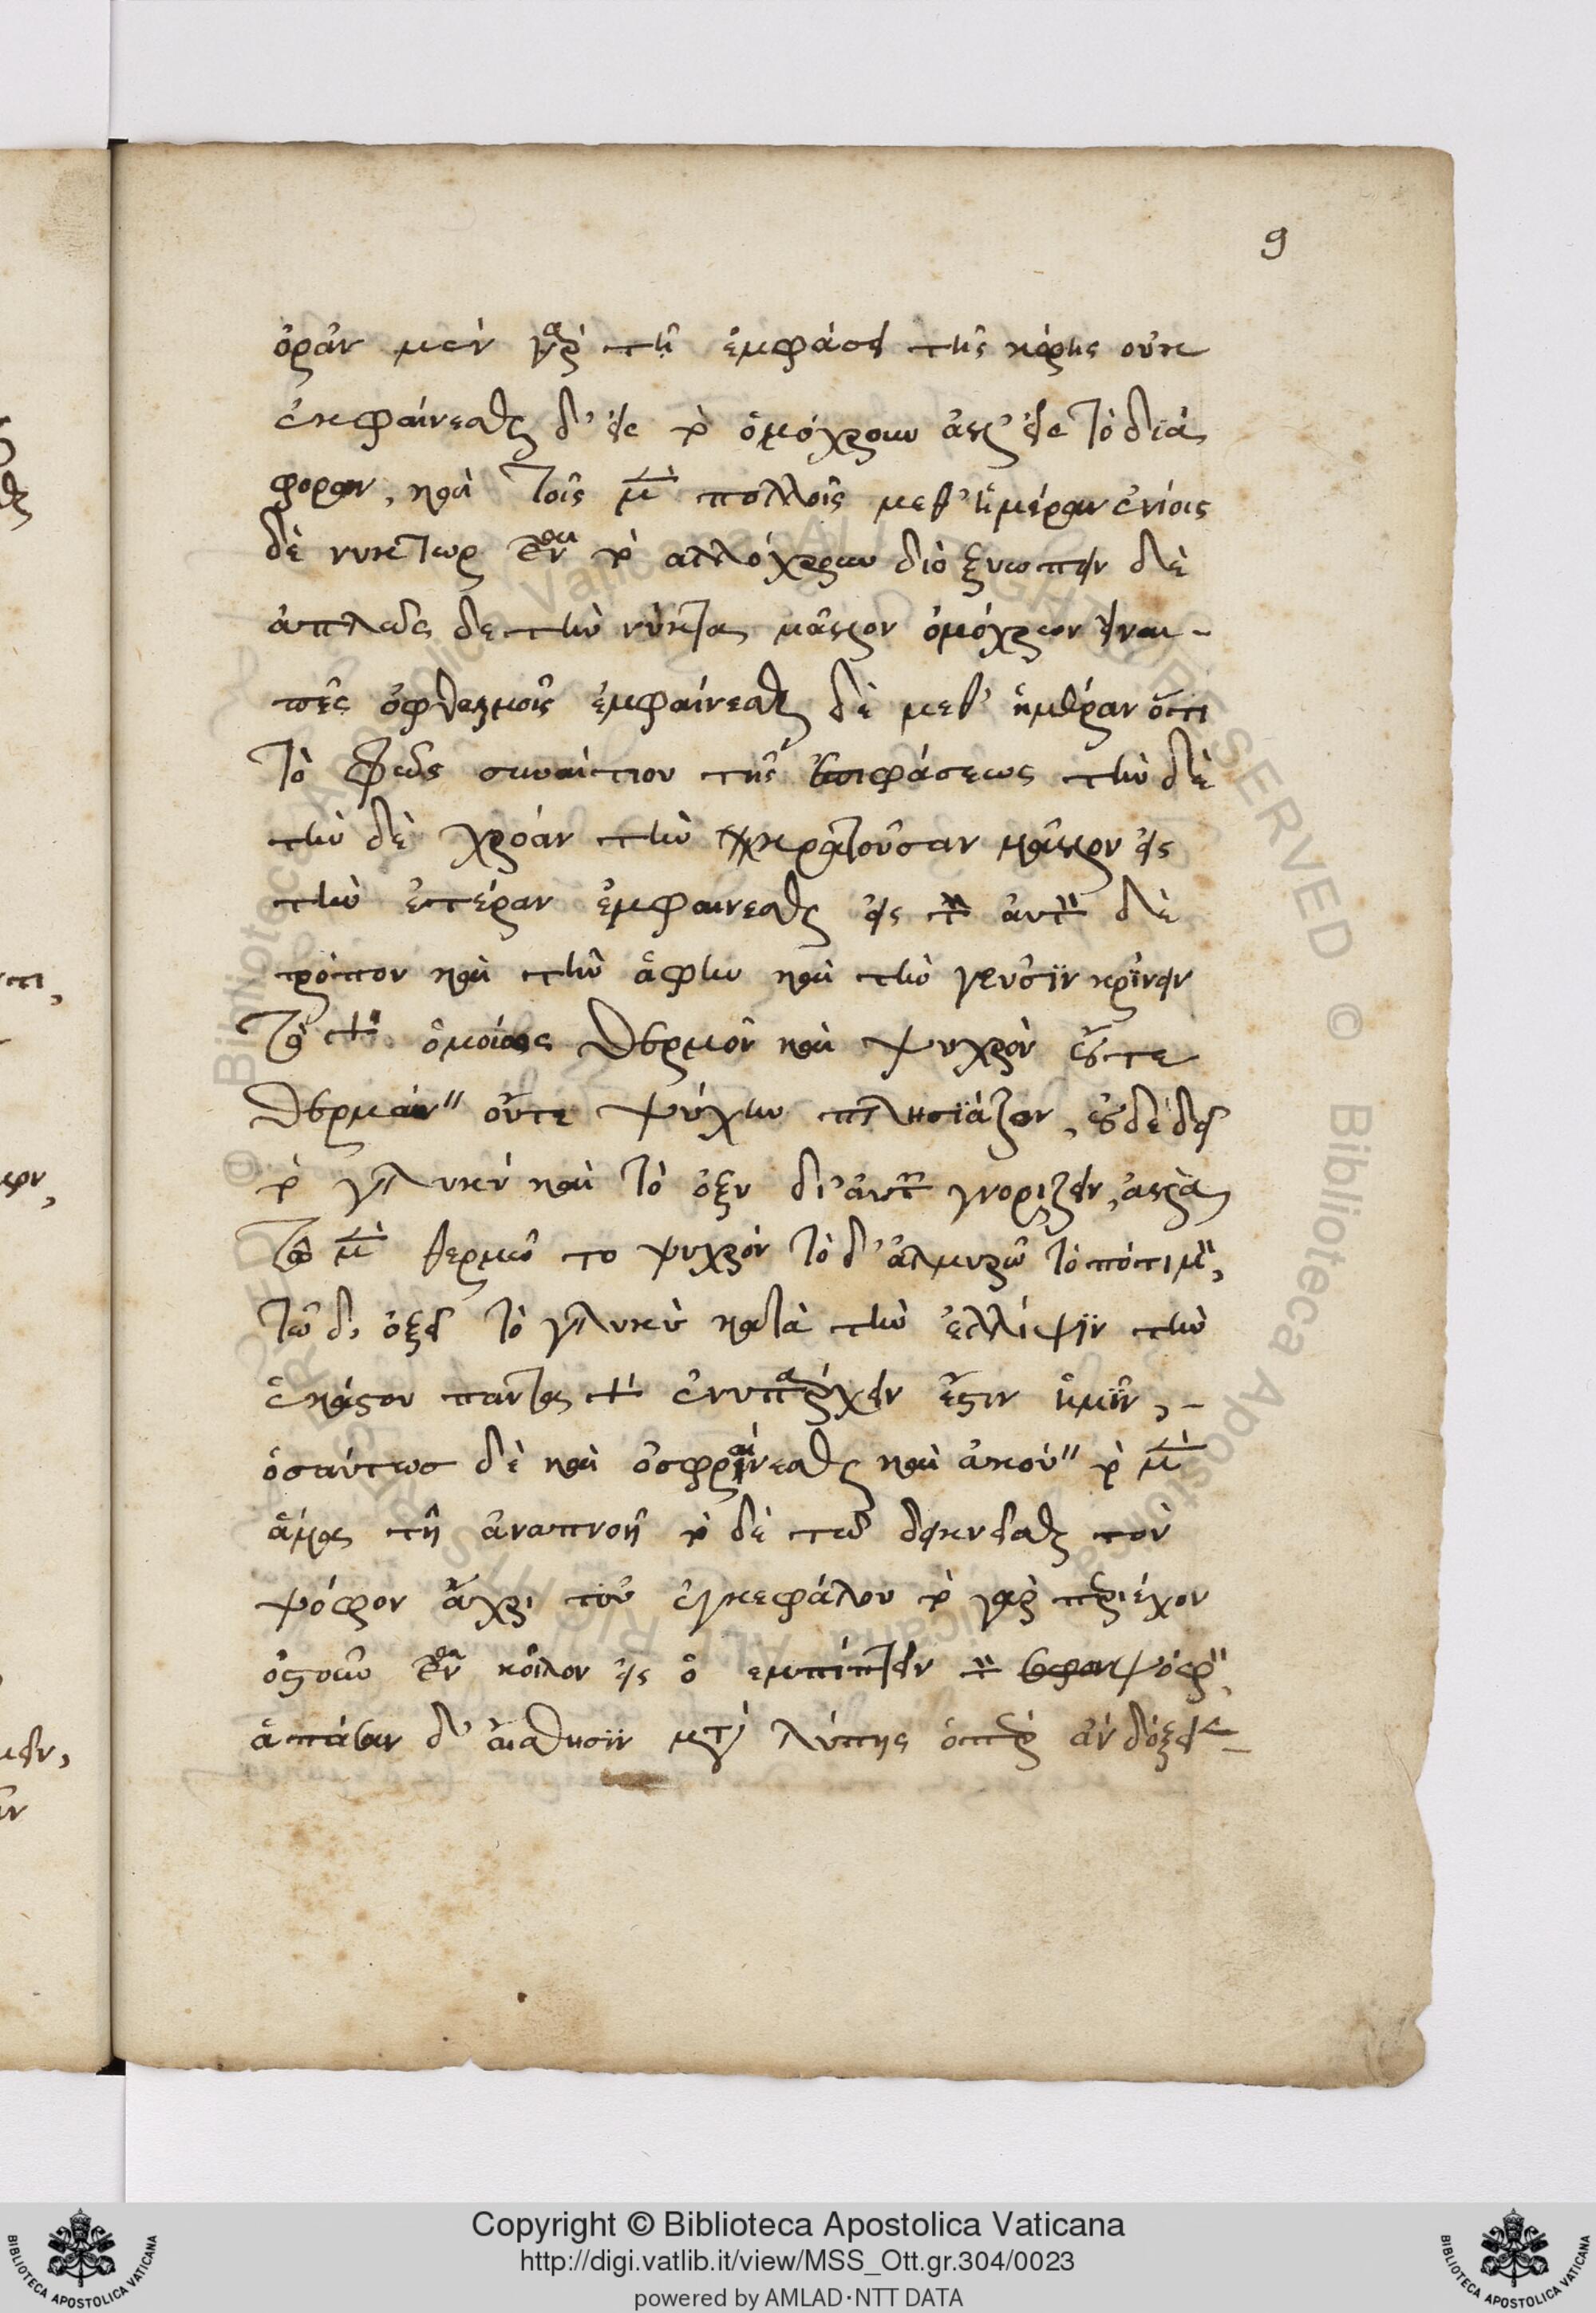 9
ὁρᾶν μὲν γὰρ τῆ ἐμφάσει τῆς κόρης οὐκ
ἐκφαίνεσθαι δ' εἰς τὸ ὁμόχρουν ἀλλ' εἰς τὸ διά
φορον, καὶ τοῖς μὲν πολλοῖς μεθ' ἡμέραν ἐνίοις
δὲ νύκτωρ εἶναι τὸ ἀλλόχρων διὸ ὀξυωπεῖν δὲ
ἁπλῶς δε τὴν νύκτα μᾶλλον ὁμόχρων εἶναι -
τοῖς ὀφθαλμοῖς ἐμφαίνεσθαι δὲ μεθ' ἡμέραν ὅτι
τὸ φῶς συναίτιον τῆς ἐμφάσεως τὴν δὲ
τὴν δὲ χρόαν τὴν κρατοῦσαν μᾶλλον εἰς
τὴν ἑτέραν ἐμφαίνεσθαι εἰς τὸν αὐτὸν δὲ
τρόπον καὶ τὴν ἁφὴν καὶ τὴν γεῦσιν κρίνειν
τῷ γὰρ ὁμοίως θερμὸν καὶ ψυχρὸν οὔτε
θερμαίνειν οὔτε ψύχειν πλησιάζον, οὐδὲ δεῖ
τὸ γλυκὺ καὶ τὸ ὀξὺ δι' αὐτῶν γνορίζειν, ἀλλὰ
τῷ μὲν θερμῷ το ψυχρὸν τὸ δ' ἁλμυρῷ τὸ πότιμον,
τῷ δ' ὀξεῖ τὸ γλυκὺ κατὰ τὴν ἔλλιψιν τὴν
ἑκάστου πάντα γὰρ ἐνυπάρχειν ἐστιν ἡμῖν, -
ὁσαύτωσ δὲ καὶ ὀσφραίνεσθαι καὶ ἀκούειν τὸ μὲν
ἅμα τῆ ἀναπνοῆ τὸ δὲ τῷ διϊκνεῖσθαι τὸν
ψόφον ἄχρι τοῦ ἐγκεφάλου τὸ γὰρ περιέχον
ὀστοῦν εἶναι κοῖλον εἰς ὃ εμπίπτειν τὸν ψόφον,
ἅπασαν δ' αἴσθησιν μετὰ λύπης ὅπερ ἂν δόξειε -
Copyright © Biblioteca Apostolica Vaticana
http://digi.vatlib.it/view/MSS_Ott.gr.304/0023
powered by AMLAD·NTT DATA